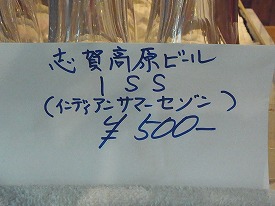 志賀高原ビール
ISS
(インディアンサマーセゾン)
¥500-